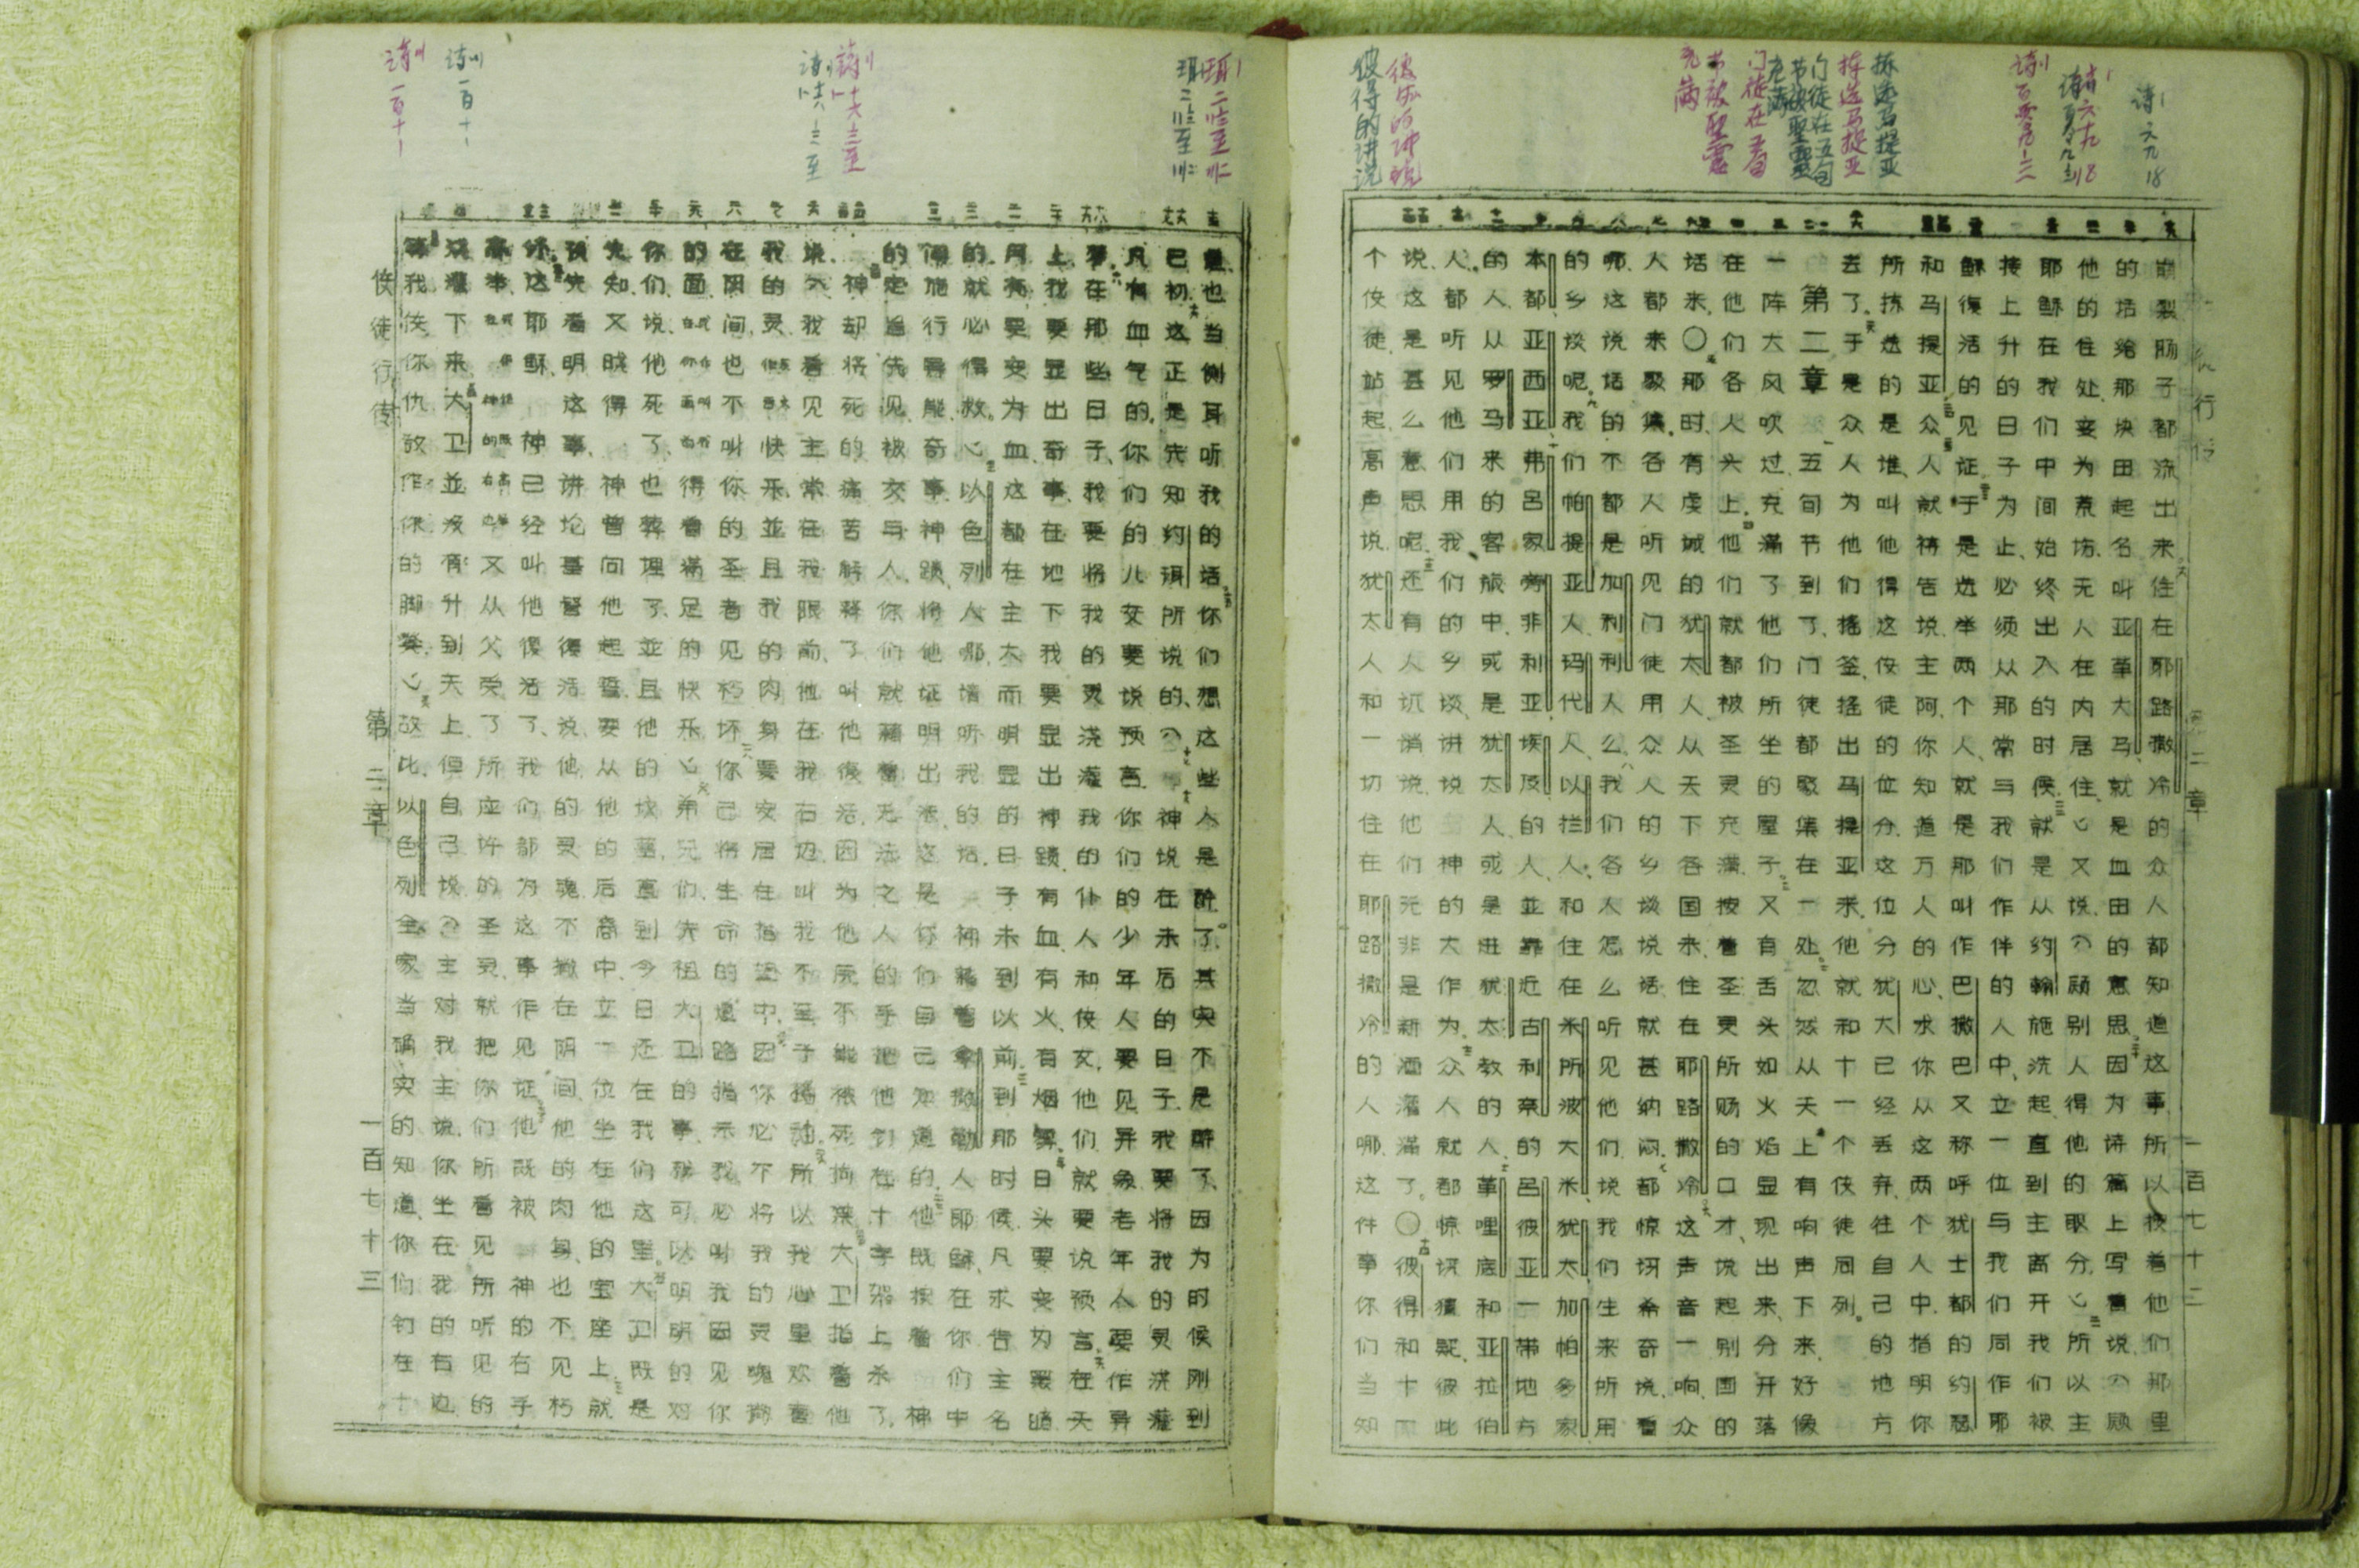 诗六九18
诗六九18
诗百零九
拣选马提亚
拣选马提亚
门徒在五旬节被聖靈充满
门徒在五旬节被聖靈充满
彼得的讲说
彼得的讲说
崩裂肠子都流出来住在耶路撒冷的众人都知道这事所以按着他们那里
的话给那块田起名叫亚革大马就是血田的意思因为诗篇上写着说︿愿
他的住处变为荒场、无人在内居住、﹀又说、︿愿别人得他的职分、﹀所以主
耶稣在我们中间始终出入的时候、就是从约翰施洗起直到主离开我们被
接上升的日子为止、必须从那常与我们作伴的人中、立一位与我们同作耶
稣復活的见证于是选举两个人、就是那叫作巴撒巴又称呼犹士都的约瑟
和马提亚众人就祷告说、主阿、你知道万人的心、求你从这两个人中、指明你
所拣选的是谁、叫他得这使徒的位分、这位分犹大已经丢弃往自己的地方
去了于是众人为他们摇签、摇出马提亚来、他就和十一个使徒同列。
第二章 五旬节到了、门徒都聚集在一处、忽然从天上有响声下来、好像
一阵大风吹过充满了他们所坐的屋子、又有舌头如火焰显现出来、分开落
在他们各人头上、他们就都被圣灵充满、按着圣灵所赐的口才、说起别国的
话来、○那时、有虔诚的犹太人、从天下各国来住在耶路撒冷这声音一响、众
人都来聚集、各人听见门徒用众人的乡谈说话就甚纳闷、都惊讶希奇说、看
哪、这说话的不都是加利利人么、我们各人怎么听见他们说我们生来所用
的乡谈呢、我们帕提亚人、玛代人、以拦人、和住在米所波大米、犹太、加帕多家
本都、亚西亚、弗吕家、旁非利亚、埃及的人、並靠近古利奈的吕彼亚一带地方
的人、从罗马来的客旅中、或是犹太人、或是进犹太教的人、革哩底和亚拉伯
人、都听见他们用我们的乡谈、讲说神的大作为众人就都惊讶猜疑、彼此
说、这是甚么意思呢、还有人讥诮说、他们无非是新酒灌满了。○彼得和十
个使徒、站起、高声说、犹太人和一切住在耶路撒冷的人哪、这件事你们当知
使徒行传 第二章 一百七十二
也当侧耳听我的话你们想这些人是醉了。其实不是醉了、因为时候刚到
已初、这正是先知约珥所说的、︿神说在末后的日子、我要将我的灵浇灌
凡有血气的、你们的儿女要说预言你们的少年人要见异象老年人要作异
梦、在那些日子、我要将我的灵浇灌我的仆人和使女、他们就要说预言、在天
上、我要显出奇事、在地下我要显出神蹟有血、有火、有烟雾、日头要变为黑暗
月亮要变为血、这都在主大而明显的日子未到以前、到那时候、凡求告主名
的、就必得救、﹀以色列人哪、请听我的话、神藉着拿撒勒人耶稣、在你们中
间施行异能奇事、神蹟、将他证明出来、这是你们自己知道的、他既按着神
的定旨先见被交与人、你们就藉着无法之人的手把他钉在十字架上杀了、
神却将死的痛苦解释了、叫他復活、因为他原不能被死拘禁大卫指着他
说、我看见主常在我眼前、他在我右边、叫我不至于摇动、所以我心里欢喜
我的灵快乐、並且我的肉身要安居在指望中、因你必不将我的灵魂撇
在阴间、也不叫你的圣者见朽坏、你已将生命的道路指示我必叫我因见你
的面得着满足的快乐、﹀弟兄们、先祖大卫的事我可以明明的对
你们说、他死了、也葬埋了、並且他的坟墓、直到今日还在我们这里。大卫既是
先知又晓得神曾向他起誓、要从他的后裔中、立一位坐在他的宝座上、就
预先看明这事、讲论基督復活说、他的灵魂不撇在阴间他的肉身也不见朽
坏、这耶稣、神已经叫他復活了、我们都为这事作见证他既被神的右手
高举、又从父受了所应许的圣灵、就把你们所看见所听见的
浇灌下来、大卫並没有升到天上但自己说、︿主对我主说、你坐在我的右边
等我使你仇敌作你的脚凳、﹀故此、以色列全家当确实的知道、你们钉在十
使徒行传 第二章 一百七十三